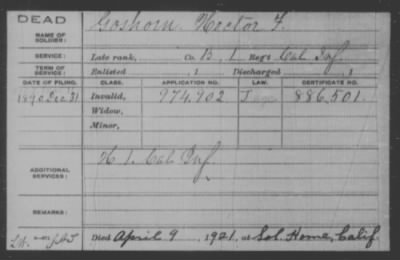 DEAD
NAME OF SOLDIER: Goshorn Hector F.
SERVICE: Late rank, Co. B, 1 Reg't Cal. Inf.
TERM OF SERVICE: Enlisted , 1 Discharged , 1
DATE OF FILING. CLASS. APPLICATION NO. LAW. CERTIFICATE NO.
1890 Dec 31 Invalid, 974.902 J 886,501
Widow,
Minor,
ADDITIONAL SERVICES: H 1. Cal. Inf.
REMARKS:
Died April 9, 1921, at Sol. Home, Calif.